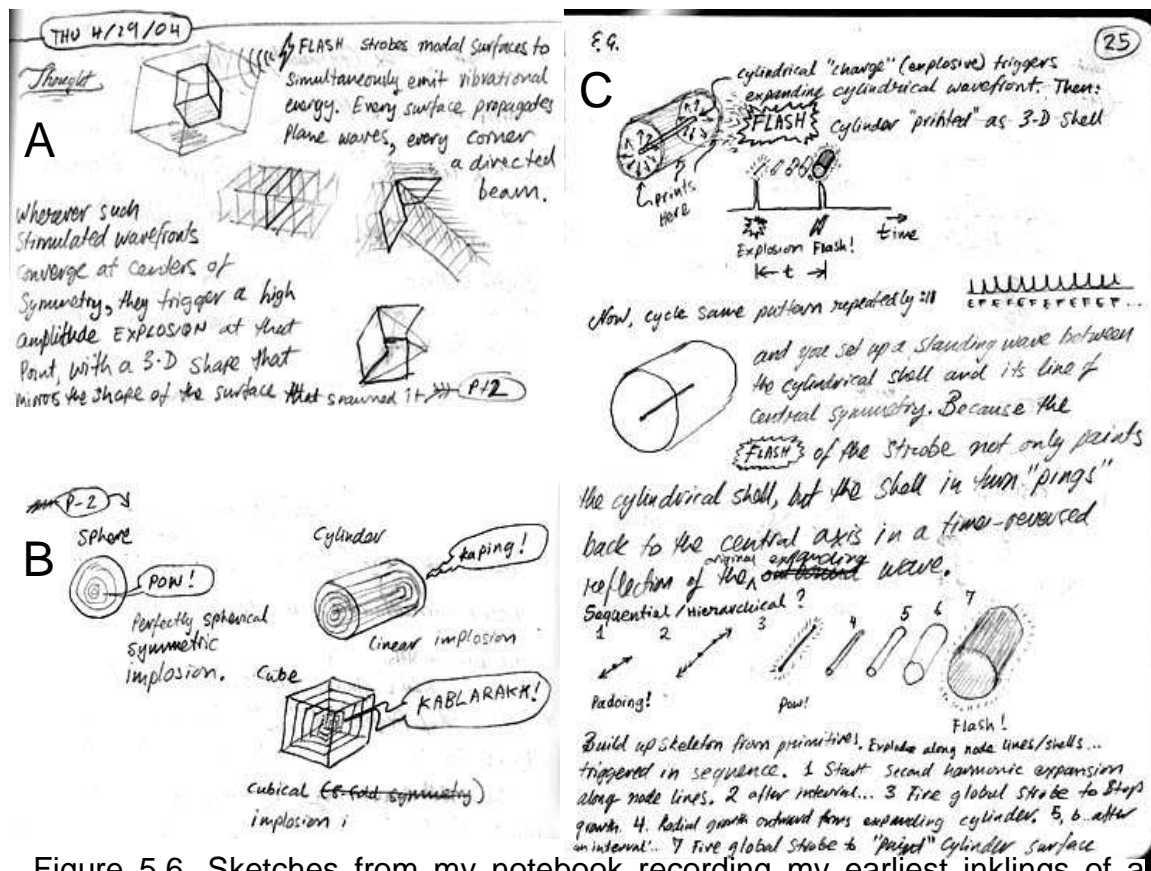 THU 4/29/04
Thought
FLASH strobes modal surfaces to
simultaneously emit vibrational
energy. Every surface propagates
plane waves, every corner
a directed
beam.
A
Wherever such
stimulated wavefronts
converge at centers of
symmetry, they trigger a high
amplitude EXPLOSION at that
point, with a 3-D shape that
mirrors the shape of the surface that spawned it.
P-2
P-2
B
Sphere
POW!
Perfectly spherical
symmetric
implosion.
Cylinder
Kaping!
linear implosion
Cube
KABLARAKH!
cubical (6-fold symmetry)
implosion
E.G.
25
C
cylindrical "charge" (explosive) triggers
expanding cylindrical wavefront. Then:
FLASH cylinder "printed" as 3-D shell
prints
Here
Explosion Flash!
time
t
Now, cycle same pattern repeatedly :||
E F E F E F E F E F E F ...
and you set up a standing wave between
the cylindrical shell and its line of
central symmetry. Because the
FLASH of the strobe not only paints
the cylindrical shell, but the shell in turn "pings"
back to the central axis in a time-reversed
original expanding
reflection of the outbound wave.
Sequential/Hierarchical?
1 2 3 4 5 6 7
Padoing! Pow! Flash!
Build up skeleton from primitives. Explode along node lines/shells...
triggered in sequence. 1 Start second harmonic expansion
along node lines. 2 after interval... 3 Fire global strobe to stop
growth. 4. Radial growth outward forms expanding cylinder. 5, 6 after
an interval... 7 Fire global strobe to "paint" cylinder surface
Figure 5.6. Sketches from my notebook recording my earliest inklings of a